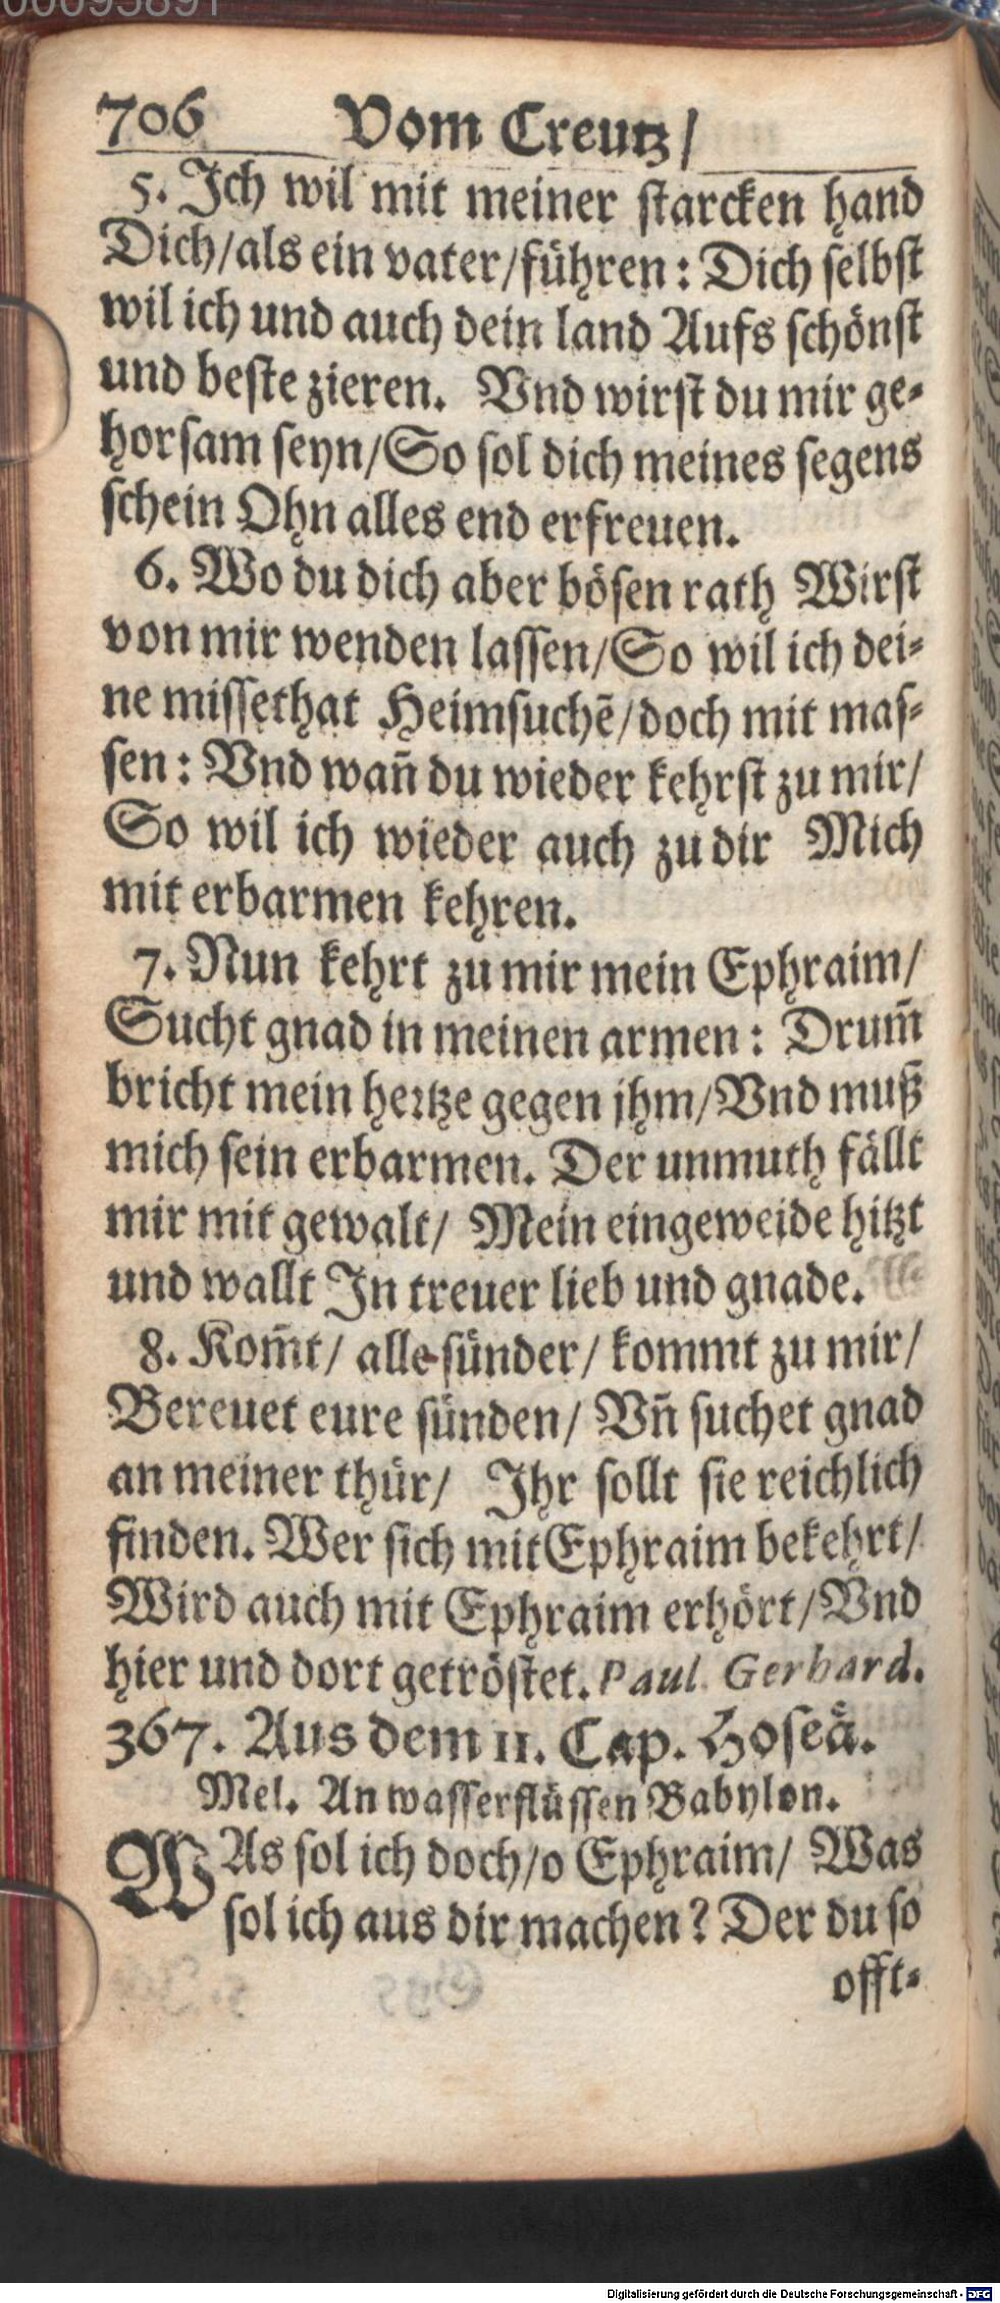 00095891
706 Vom Creutz/
5. Ich wil mit meiner starcken hand
Dich/als ein vater/führen: Dich selbst
wil ich und auch dein land Aufs schönst
und beste zieren. Vnd wirst du mir ge-
horsam seyn/So sol dich meines segens
schein Ohn alles end erfreuen.
6. Wo du dich aber bösen rath Wirst
von mir wenden lassen/So wil ich dei-
ne missethat Heimsuchē/doch mit mas-
sen: Vnd wañ du wieder kehrst zu mir/
So wil ich wieder auch zu dir Mich
mit erbarmen kehren.
7. Nun kehrt zu mir mein Ephraim/
Sucht gnad in meinen armen: Drum̃
bricht mein hertze gegen jhm/Vnd muß
mich sein erbarmen. Der unmuth fällt
mir mit gewalt/ Mein eingeweide hitzt
und wallt In treuer lieb und gnade.
8. Kom̃t/ alle sünder/ kommt zu mir/
Bereuet eure sünden/ Vñ suchet gnad
an meiner thür/ Ihr sollt sie reichlich
finden. Wer sich mit Ephraim bekehrt/
Wird auch mit Ephraim erhört/Vnd
hier und dort getröstet. Paul. Gerhard.
367. Aus dem 11. Cap. Hoseä.
Mel. An wasserflüssen Babylon.
WAs sol ich doch/o Ephraim/ Was
sol ich aus dir machen? Der du so
offt-
Digitalisierung gefördert durch die Deutsche Forschungsgemeinschaft - DFG